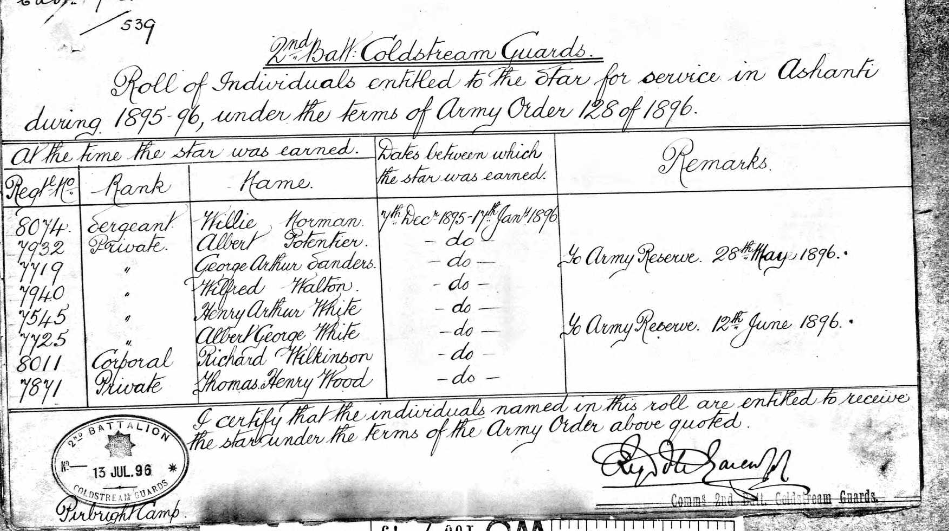 539
2nd Batt: Coldstream Guards.
Roll of Individuals entitled to the Star for service in Ashanti
during 1895-96, under the terms of Army Order 128 of 1896.
At the time the star was earned. Dates between which the star was earned. Remarks.
Regtl No. Rank Name.
8074 Sergeant Willie Norman 7th Decr 1895-17th Jany 1896
7932 Private. Albert Potentier. - do -
7719 " George Arthur Sanders. - do - To Army Reserve. 28th May 1896.
7940 " Wilfred Walton. - do -
7545 " Henry Arthur White - do -
7725 " Albert George White - do - To Army Reserve. 12th June 1896.
8011 Corporal Richard Wilkinson - do -
7871 Private Thomas Henry Wood - do -
I certify that the individuals named in this roll are entitled to receive
the star under the terms of the Army Order above quoted.
2ND BATTALION
No 13 JUL. 96
COLDSTREAM GUARDS
Pirbright Camp.
Commg 2nd Batt. Coldstream Guards.